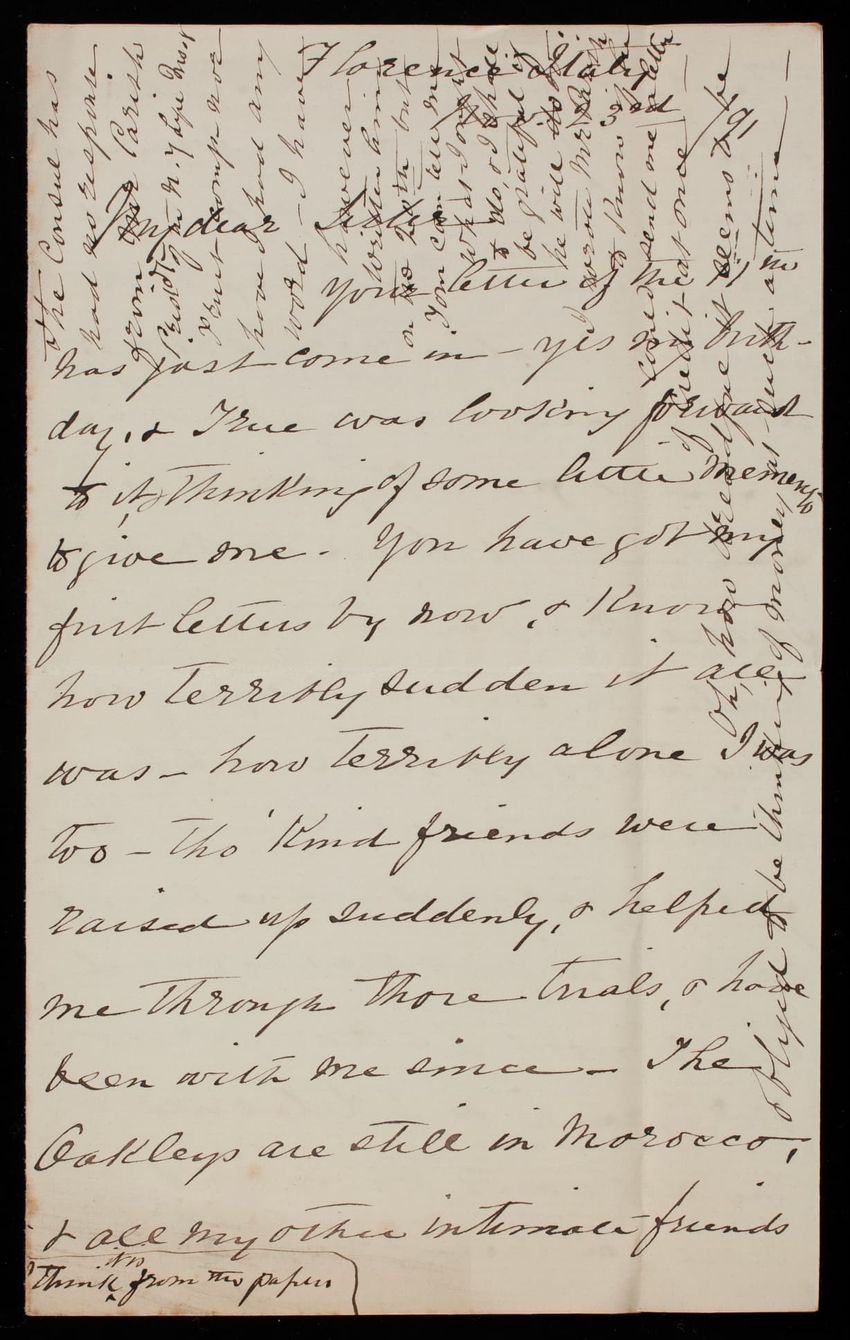 Florence Italy
Nov. 23rd /91
My dear Sister
Your letter of the 11th
has just come in – yes my birth-
day, & True was looking forward
to it, thinking of some little memento
to give me. You have got my
first letters by now, & Know
how terribly sudden it all
was – how terribly alone I was
too – tho' Kind friends were
raised up suddenly, & helped
me through those trials, & have
been with me since – The
Oakleys are still in Morocco,
& all my other intimate friends
think it is from the papers
The Consul has
had no response
from Parish
Presidt N. Y Life Insce
Trust Comp nor
have I had any
word – I have
however
written him
but
you can tell me
what I ought
to do, & I shall
be grateful if
he will do
I wrote Mr
to Know if he
could send me letter
of credit at once –
Oh, how dreadful it seems to be
obliged to be thinking of money at such a time –